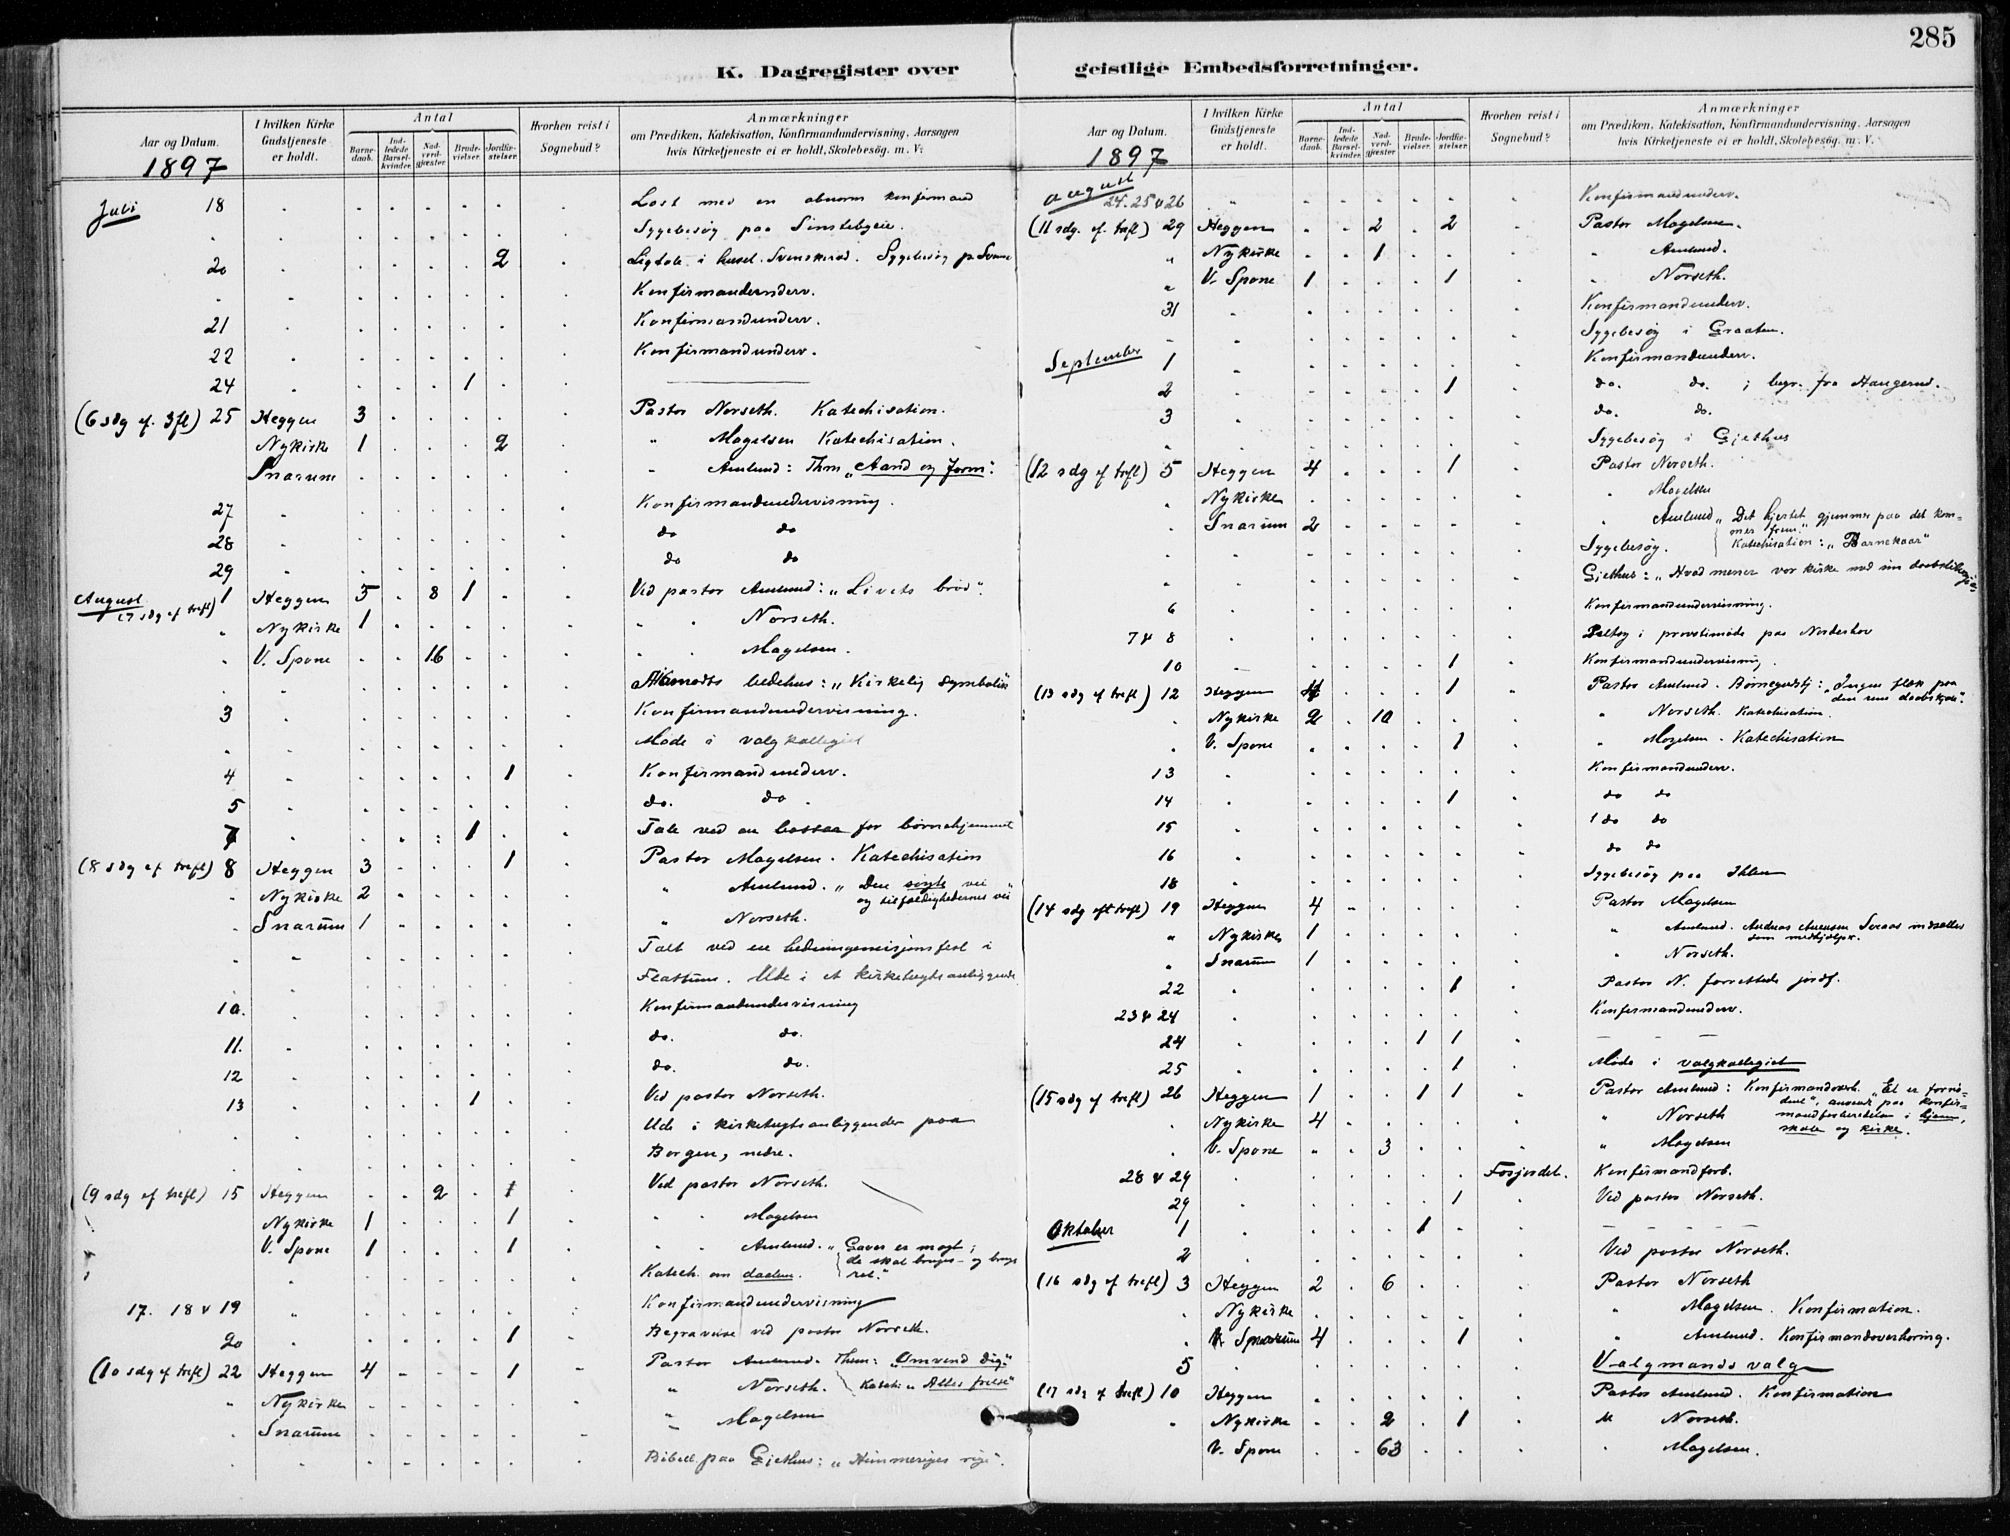 285
K. Dagregister over geistlige Embedsforretninger.
Aar og Datum.
I hvilken Kirke Gudstjeneste er holdt.
Antal
Barnedaab.
Indledede Barselkvinder.
Nadverdgjæster
Brudevielser.
Jordfæstelser.
Hvorhen reist i Sognebud?
Anmærkninger
om Prædiken, Katekisation, Konfirmandundervisning, Aarsagen
hvis Kirketjeneste ei er holdt, Skolebesøg. m. V.
1897
Juli 18 Læst med en abnorm konfirmand
Sygebesøg paa
20 2 Ligtale i huset. Sygebesøg
Konfirmandunderv.
21 Konfirmandunderv.
22 Konfirmandunderv.
24 1
(6 sdg ef. 3fl) 25 Heggen 3 Pastor Norseth. Katechisation.
Nykirke 1 2 " Magelsen Katechisation.
Snarum " Amlund: Thm „Aand og form".
27 Konfirmandundervisning.
28 do do
29 do do
August 1 Heggen 5 8 1 Ved pastor Amlund: „Livets brød".
(7 sdg ef trefl)
" Nykirke 1 " " Norseth.
" V. Spone 16 " " Magelsen.
bedehus: „Kirkelig symbolik"
3 Konfirmandundervisning.
" Møde i valgkollegiet
4 1 Konfirmandunderv.
5 do. do.
7 1 Tale ved en bassar for børnehjemmet
(8 sdg ef trefl) 8 Heggen 3 1 Pastor Magelsen. Katechisation
" Nykirke 2 " Amlund. „Den vei
og tilfældighedernes vei"
" Snarum 1 " Norseth.
Talt ved en hedningemisjonsfest i
Flattum. Ude i et kirketugtsanliggende
10. Konfirmandundervisning
11. do. do.
12 do. do.
13 1 Ved pastor Norseth.
Ude i kirketugtsanliggender paa
Borgen, nedre.
(9 sdg ef trefl) 15 Heggen 2 1 Ved pastor Norseth.
Nykirke 1 1 " " Magelsen
V. Spone 1 1 " " Amlund. „Gaver er magt;
de skal bruges - og bruges
ret."
Katech. om daaben.
17. 18 & 19 Konfirmandundervisning
20 1 Begravelse ved pastor Norseth.
(10 sdg ef trefl) 22 Heggen 4 1 Pastor Amlund. Thm: „Omvend dig"
" Nykirke " Norseth.
" Snarum " Magelsen
Bibell. paa Gjethus: „Himmeriges rige".
Aar og Datum.
I hvilken Kirke Gudstjeneste er holdt.
Antal
Barnedaab.
Indledede Barselkvinder.
Nadverdgjæster
Brudevielser.
Jordfæstelser.
Hvorhen reist i Sognebud?
Anmærkninger
om Prædiken, Katekisation, Konfirmandundervisning, Aarsagen
hvis Kirketjeneste ei er holdt, Skolebesøg. m. V.
1897
August 24. 25 & 26 Konfirmandunderv.
(11 sdg. ef. trefl) 29 Heggen 2 2 Pastor Magelsen.
" Nykirke 1 " Amlund.
" V. Spone 1 1 " Norseth.
31 Konfirmandunderv.
Sygebesøg i Graaten.
September 1 Konfirmandunderv.
2 1 do. do. ; begr. fra Haugerud.
3 do. do.
Sygebesøg i Gjethus
(12 sdg ef trefl) 5 Heggen 4 1 Pastor Norseth.
" Nykirke " Magelsen
Snarum 2 " Amlund „Det hjertet gjemmer paa det kommer
frem."
Katechisation: „Barnekaar"
Sygebesøg.
Gjethus: „Hvad mener vor kirke med sin
6 Konfirmandundervisning.
7 & 8 Deltog i provstimøde paa Norderhov
10 1 Konfirmandundervisning.
(13 sdg ef trefl) 12 Heggen 4 1 Pastor Amlund. Børnegudstj: „Ingen flæk paa
den rene daabskjole".
Nykirke 2 10 " Norseth. Katechisation.
V. Spone 1 " Magelsen. Katechisation
13 Konfirmandunderv.
14 1 do do
15 do do
16 do do
18 Sygebesøg paa Ihlen
(14 sdg eft trefl) 19 Heggen 4 Pastor Magelsen
" Nykirke 1 " Amlund. Andreas indsattes
som medhjælper.
" Snarum 1 " Norseth.
22 1 Pastor N. forrettede jordf.
23 & 24 Konfirmandunderv.
24 1 1
25 1 Møde i valgkollegiet
(15 sdg ef trefl) 26 Heggen 1 1 1 Pastor Amlund: Konfirmandoverh. „Et er fornødent",
anvendt paa konfirmandforberedelsen
i hjem,
skole og kirke.
Nykirke 4 " Norseth
V. Spone 3 " Magelsen
28 & 29 Fosjerdet. Konfirmandforb.
29 1 Ved pastor Norseth.
Oktober 1 1
2 Ved pastor Norseth.
(16 sdg ef trefl) 3 Heggen 2 6 Pastor Norseth
Nykirke " Magelsen. Konfirmation.
Snarum 4 1 " Amlund. Konfirmandoverhøring.
5 Valgmandsvalg
(17 sdg ef trefl) 10 Heggen Pastor Amlund. Konfirmation
" Nykirke 2 1 " Norseth.
V. Spone 63 " Magelsen.